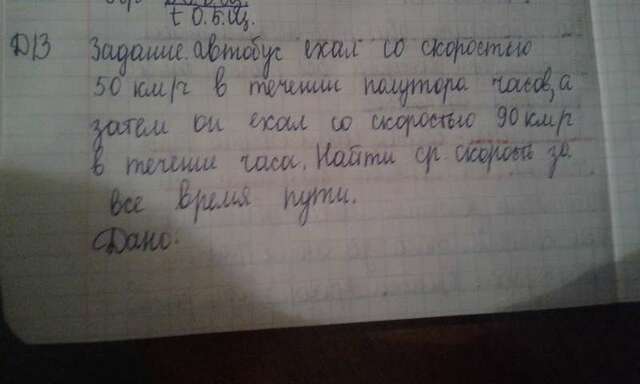 t О.Б.Щ.
Д/З Задание. автобус ехал со скоростью
50 км/ч в течении полутора часов, а
затем он ехал со скоростью 90 км/ч
в течении часа. Найти ср. скорость за
все время пути.
Дано: